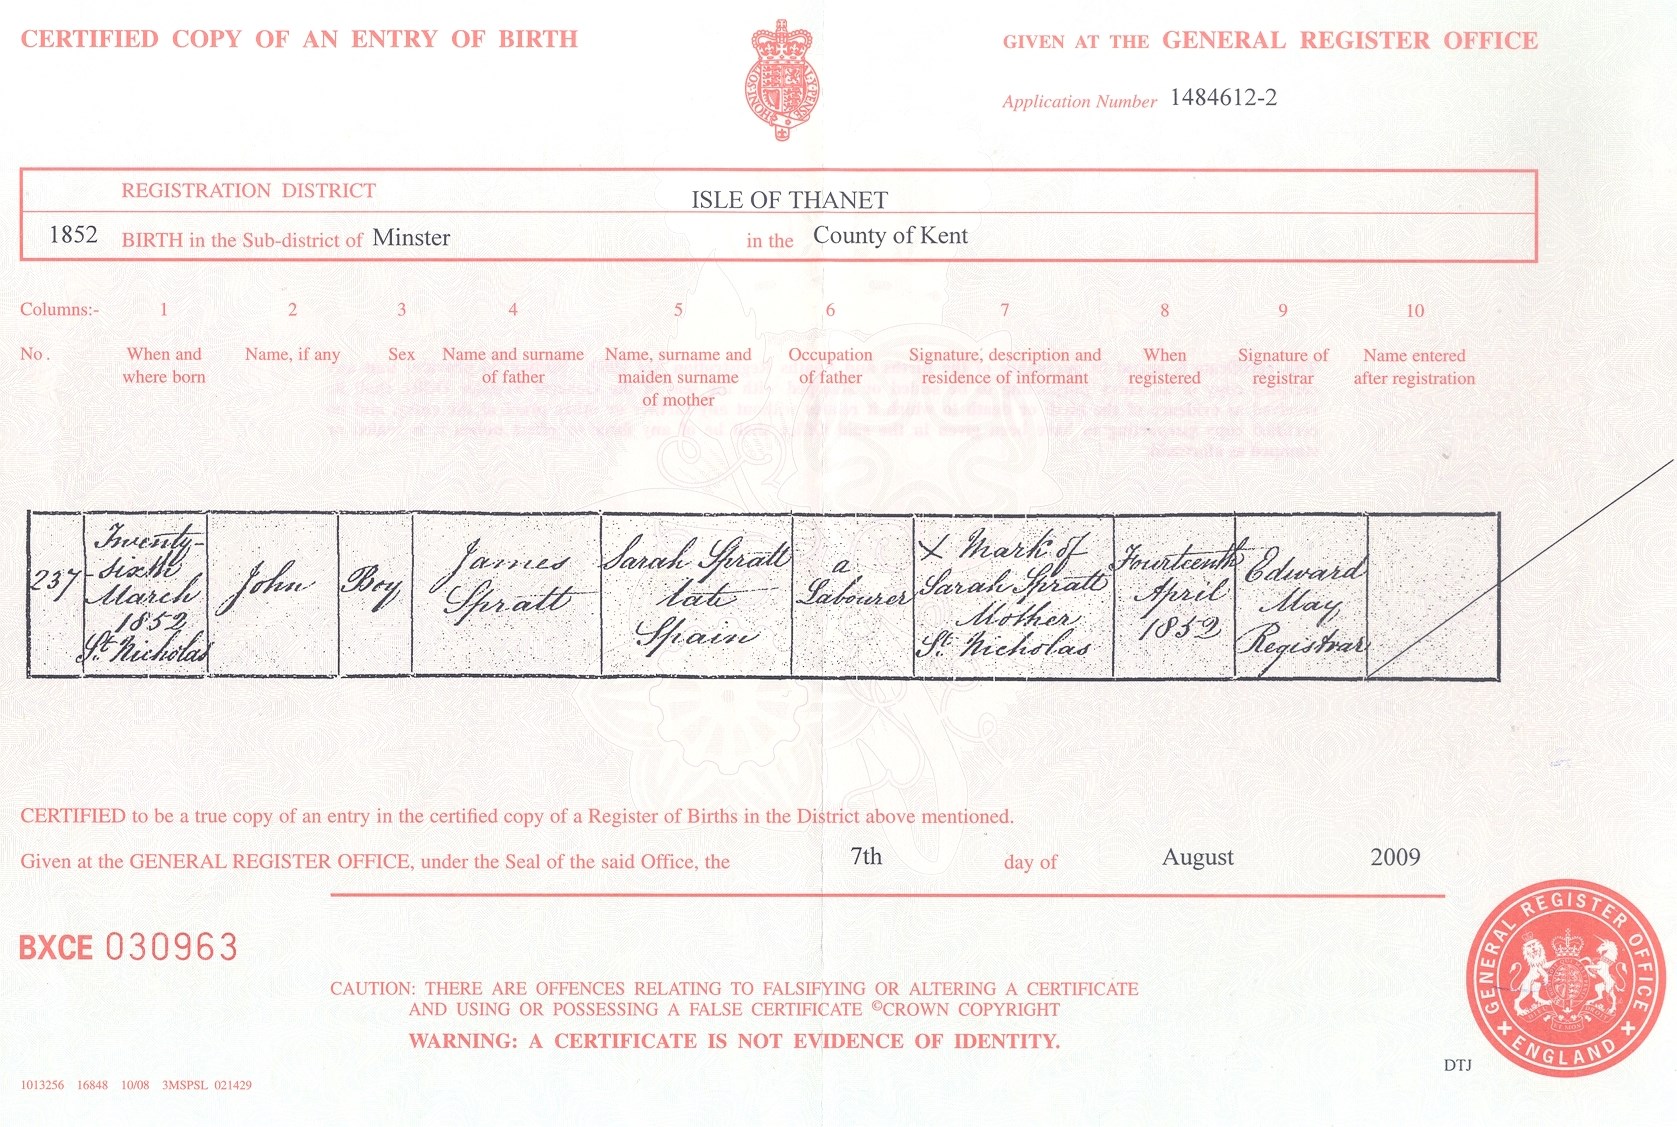 CERTIFIED COPY OF AN ENTRY OF BIRTH
GIVEN AT THE GENERAL REGISTER OFFICE
Application Number 1484612-2
REGISTRATION DISTRICT ISLE OF THANET
1852 BIRTH in the Sub-district of Minster in the County of Kent
Columns:- 1 2 3 4 5 6 7 8 9 10
No. When and where born Name, if any Sex Name and surname of father Name, surname and maiden surname of mother Occupation of father Signature, description and residence of informant When registered Signature of registrar Name entered after registration
237
Twenty-
sixth
March
1852
St. Nicholas
John
Boy
James
Spratt
Sarah Spratt
late
Spain
a
Labourer
X Mark of
Sarah Spratt
Mother
St. Nicholas
Fourteenth
April
1852
Edward
May
Registrar
CERTIFIED to be a true copy of an entry in the certified copy of a Register of Births in the District above mentioned.
Given at the GENERAL REGISTER OFFICE, under the Seal of the said Office, the 7th day of August 2009
BXCE 030963
CAUTION: THERE ARE OFFENCES RELATING TO FALSIFYING OR ALTERING A CERTIFICATE
AND USING OR POSSESSING A FALSE CERTIFICATE ©CROWN COPYRIGHT
WARNING: A CERTIFICATE IS NOT EVIDENCE OF IDENTITY.
GENERAL REGISTER OFFICE
ENGLAND
DTJ
1013256 16848 10/08 3MSPSL 021429